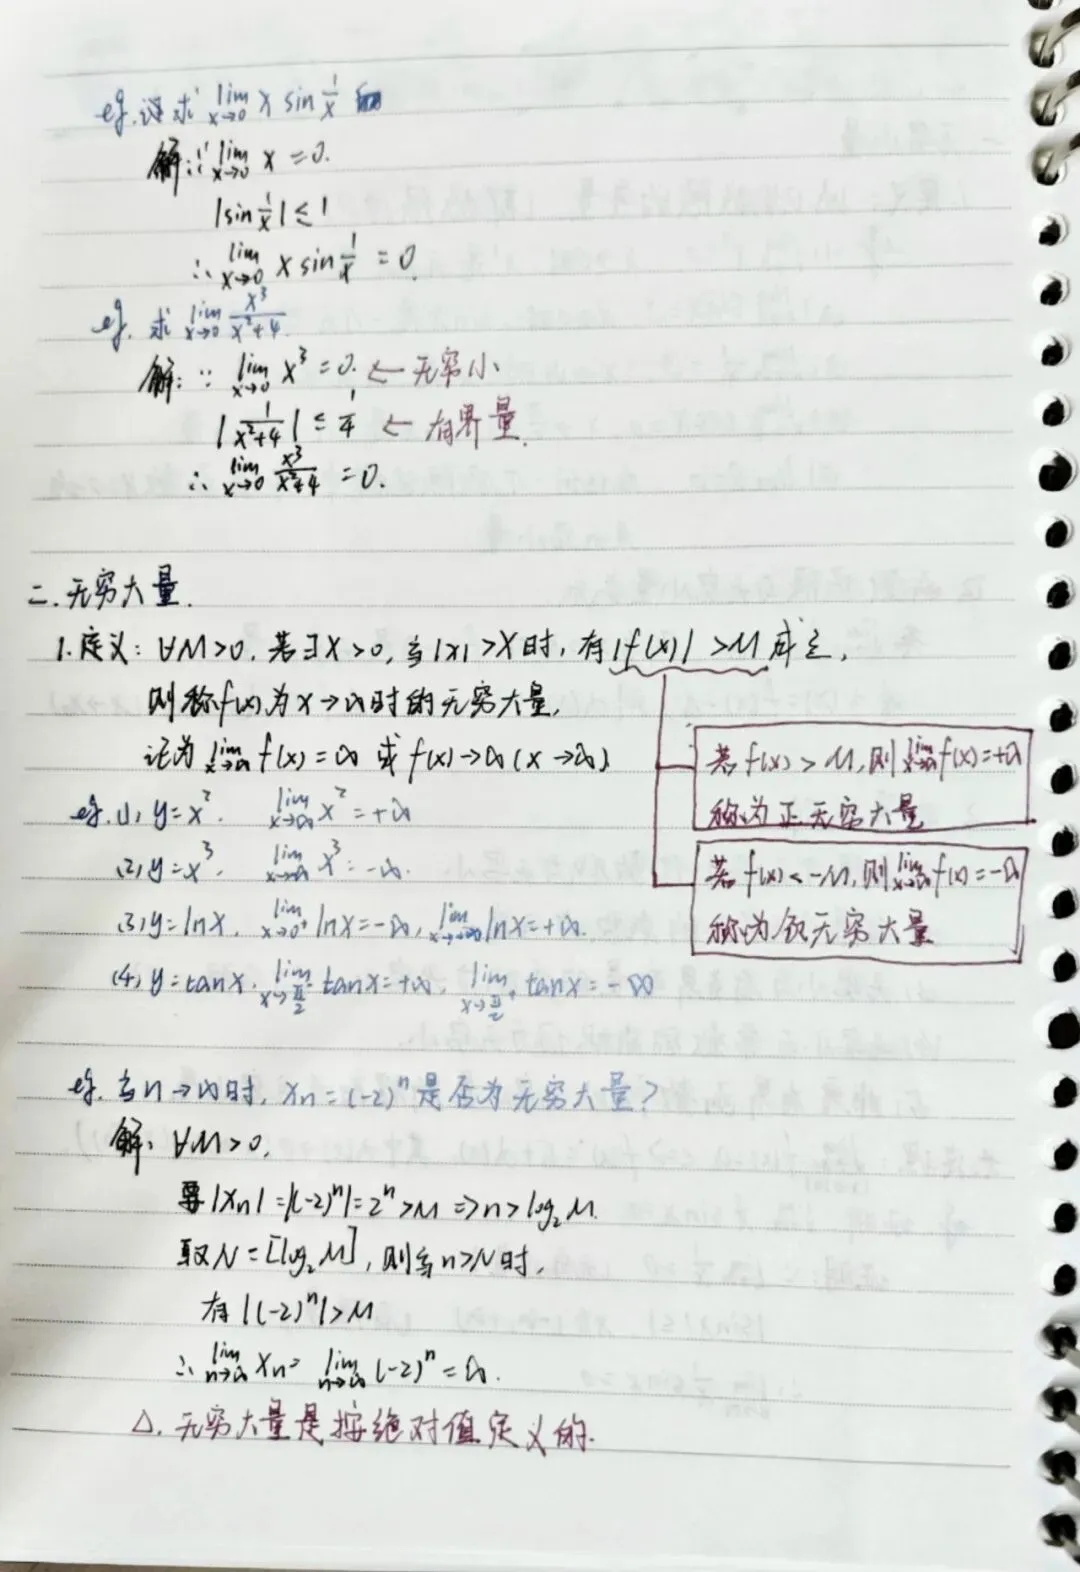 eg. 试求 lim x→0 x sin 1/x
解: ∵ lim x→0 x = 0.
|sin 1/x| ≤ 1
∴ lim x→0 x sin 1/x = 0
eg. 求 lim x→0 x³/(x²+4)
解: ∵ lim x→0 x³ = 0. ← 无穷小
|1/(x²+4)| ≤ 1/4 ← 有界量.
∴ lim x→0 x³/(x²+4) = 0.
二. 无穷大量.
1. 定义: ∀M>0, 若∃X>0, 当|x|>X时, 有|f(x)|>M成立,
则称f(x)为x→∞时的无穷大量,
记为 lim x→∞ f(x)=∞ 或 f(x)→∞(x→∞)
若f(x)>M, 则 lim x→∞ f(x)=+∞
称为正无穷大量
若f(x)<-M, 则 lim x→∞ f(x)=-∞
称为负无穷大量
eg. (1) y=x². lim x→∞ x²=+∞
(2) y=x³. lim x→-∞ x³=-∞.
(3) y=lnx. lim x→0⁺ lnx=-∞, lim x→+∞ lnx=+∞.
(4) y=tanx. lim x→π/2⁻ tanx=+∞. lim x→π/2⁺ tanx=-∞
eg. 当n→∞时, xn=(-2)ⁿ是否为无穷大量?
解: ∀M>0,
要|xn|=|(-2)ⁿ|=2ⁿ>M ⇒ n>log₂M.
取N=[log₂M], 则当n>N时,
有|(-2)ⁿ|>M
∴ lim n→∞ xn= lim n→∞ (-2)ⁿ=∞.
△. 无穷大量是按绝对值定义的.